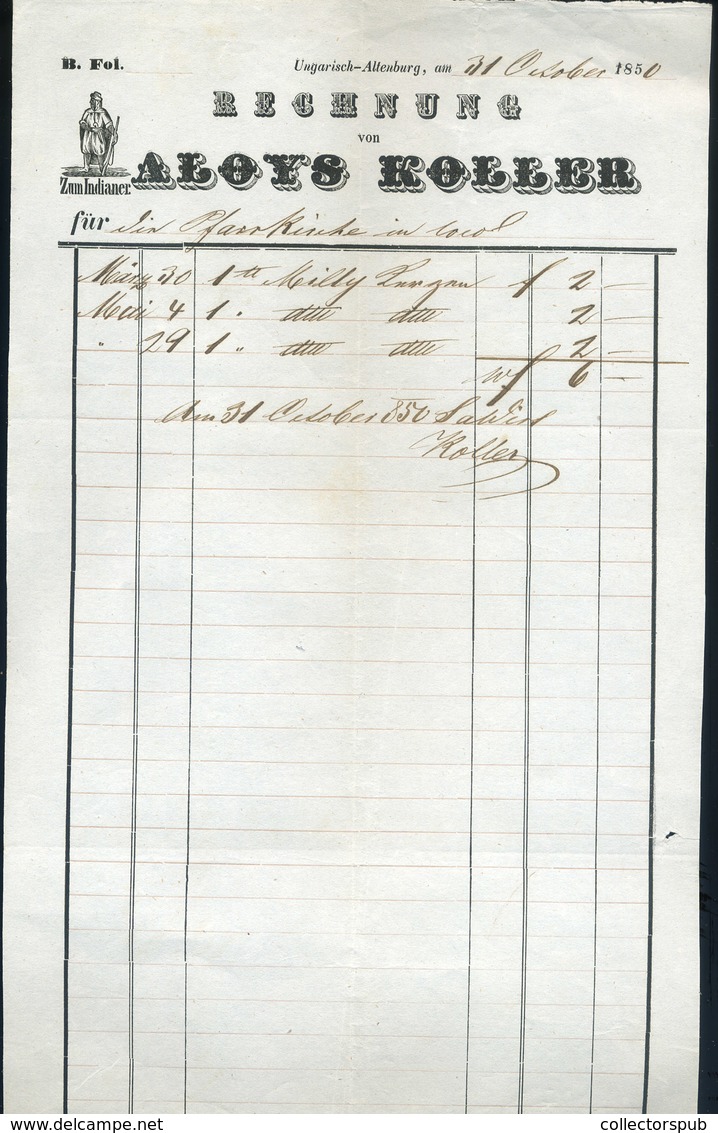 B. Fol.
Ungarisch-Altenburg, am 31 October 1850
RECHNUNG
von
Zum Indianer.
ALOYS KOLLER
für die Pfarrkirche in loco
März 30 1 Milly Kerzen f 2 —
Mai 4 1 " dtto dtto 2 —
" 29 1 " dtto dtto 2 —
f 6 —
Am 31 October 850
Koller
collectorspub